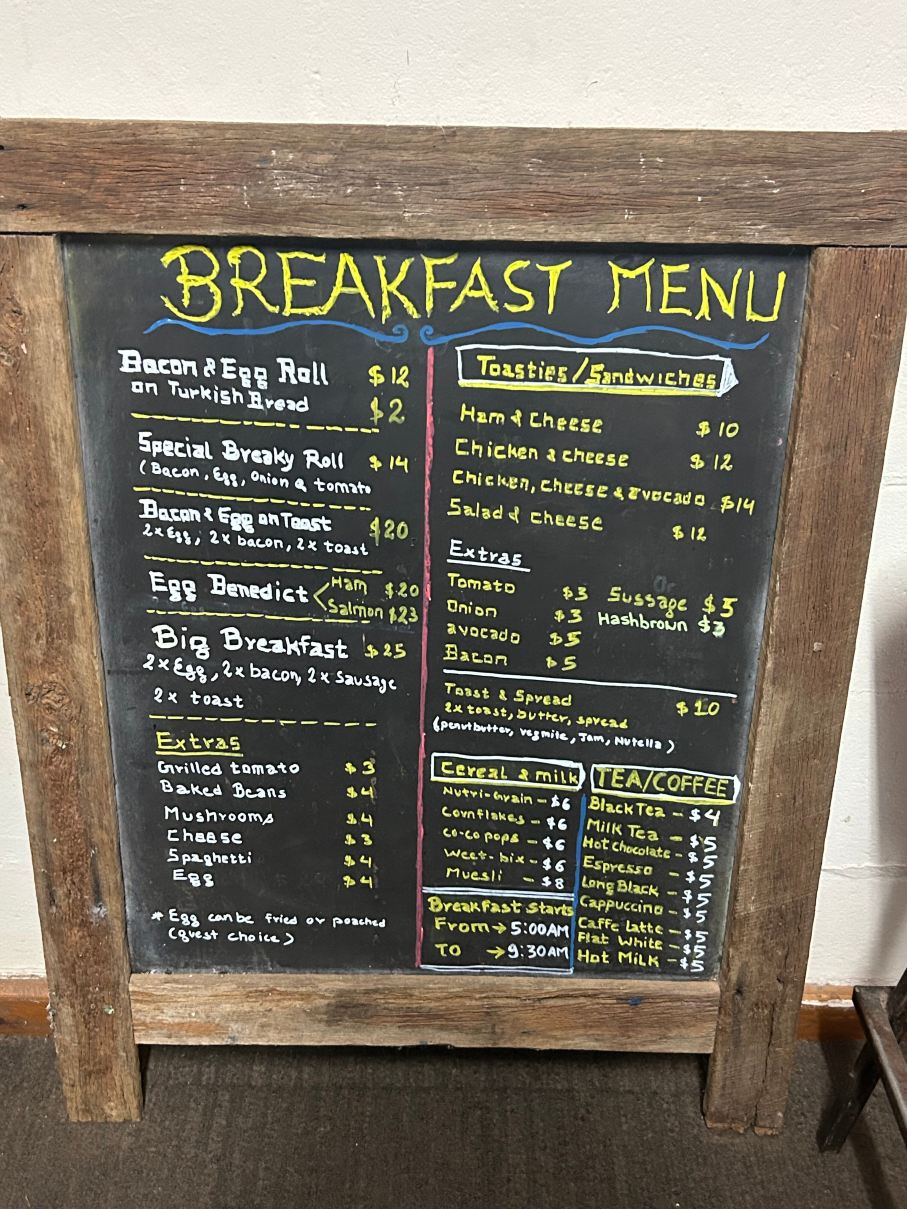 BREAKFAST MENU
Bacon & Egg Roll $12
on Turkish Bread $2
Special Breaky Roll $14
(Bacon, Egg, Onion & tomato
Bacon & Egg on Toast $20
2x Egg, 2x bacon, 2x toast
Egg Benedict < Ham $20
Salmon $23
Big Breakfast $25
2x Egg, 2x bacon, 2x Sausage
2x toast
Extras
Grilled tomato $3
Baked Beans $4
Mushrooms $4
Cheese $3
Spaghetti $4
Egg $4
* Egg can be fried or poached
(guest choice)
Toasties/Sandwiches
Ham & Cheese $10
Chicken & cheese $12
Chicken, Cheese & avocado $14
Salad & cheese $12
Extras
Tomato $3 Sussage $3
Onion $3 Hashbrown $3
avocado $5
Bacon $5
Toast & Spread $10
2x toast, butter, spread
(penutbutter, vegmile, Jam, Nutella)
Cereal & milk
Nutri-Grain - $6
Cornflakes - $6
co-co pops - $6
Weet-bix - $6
Muesli - $8
Breakfast Starts
From → 5:00AM
TO → 9:30AM
TEA/COFFEE
Black Tea - $4
Milk Tea - $5
Hot Chocolate - $5
Espresso - $5
Long Black - $5
Cappuccino - $5
Caffe Latte - $5
Flat White - $5
Hot Milk - $5